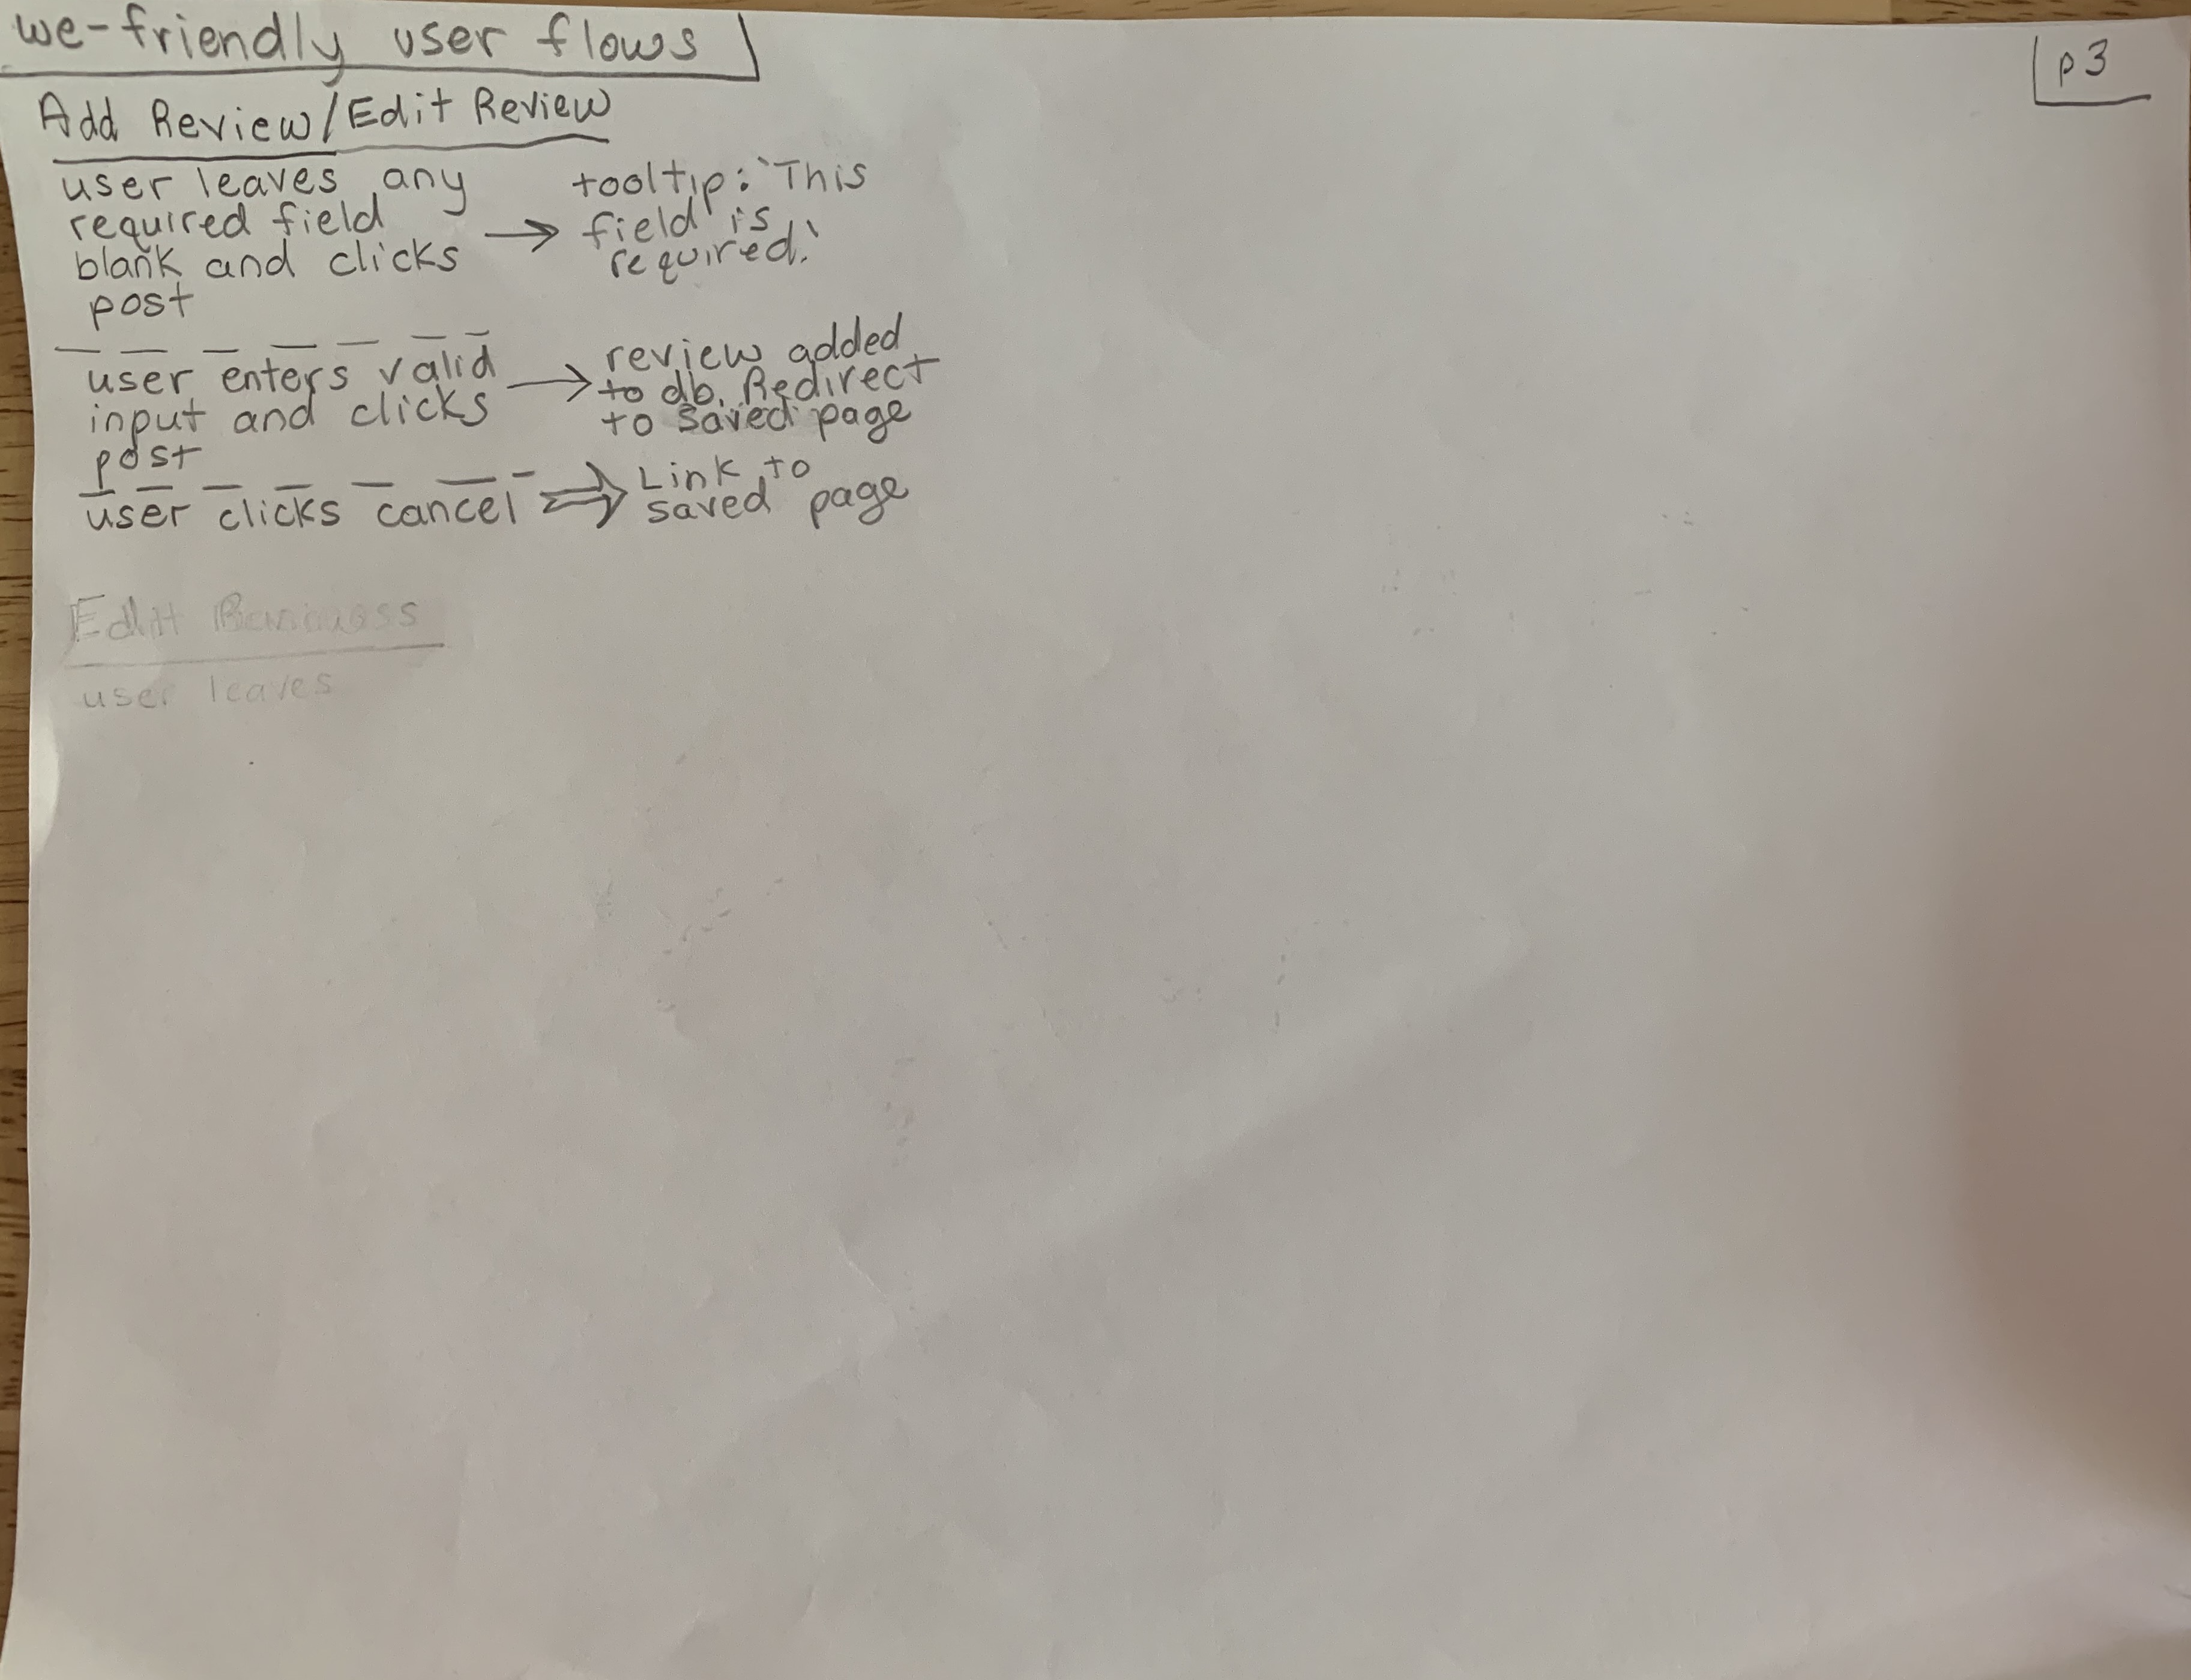 we-friendly user flows
p3
Add Review/Edit Review
user leaves any
required field
blank and clicks
post
tooltip: `This
field is
required.`
user enters valid
input and clicks
post
review added
to db. Redirect
to saved page
user clicks cancel
Link to
saved page
Edit
user leaves